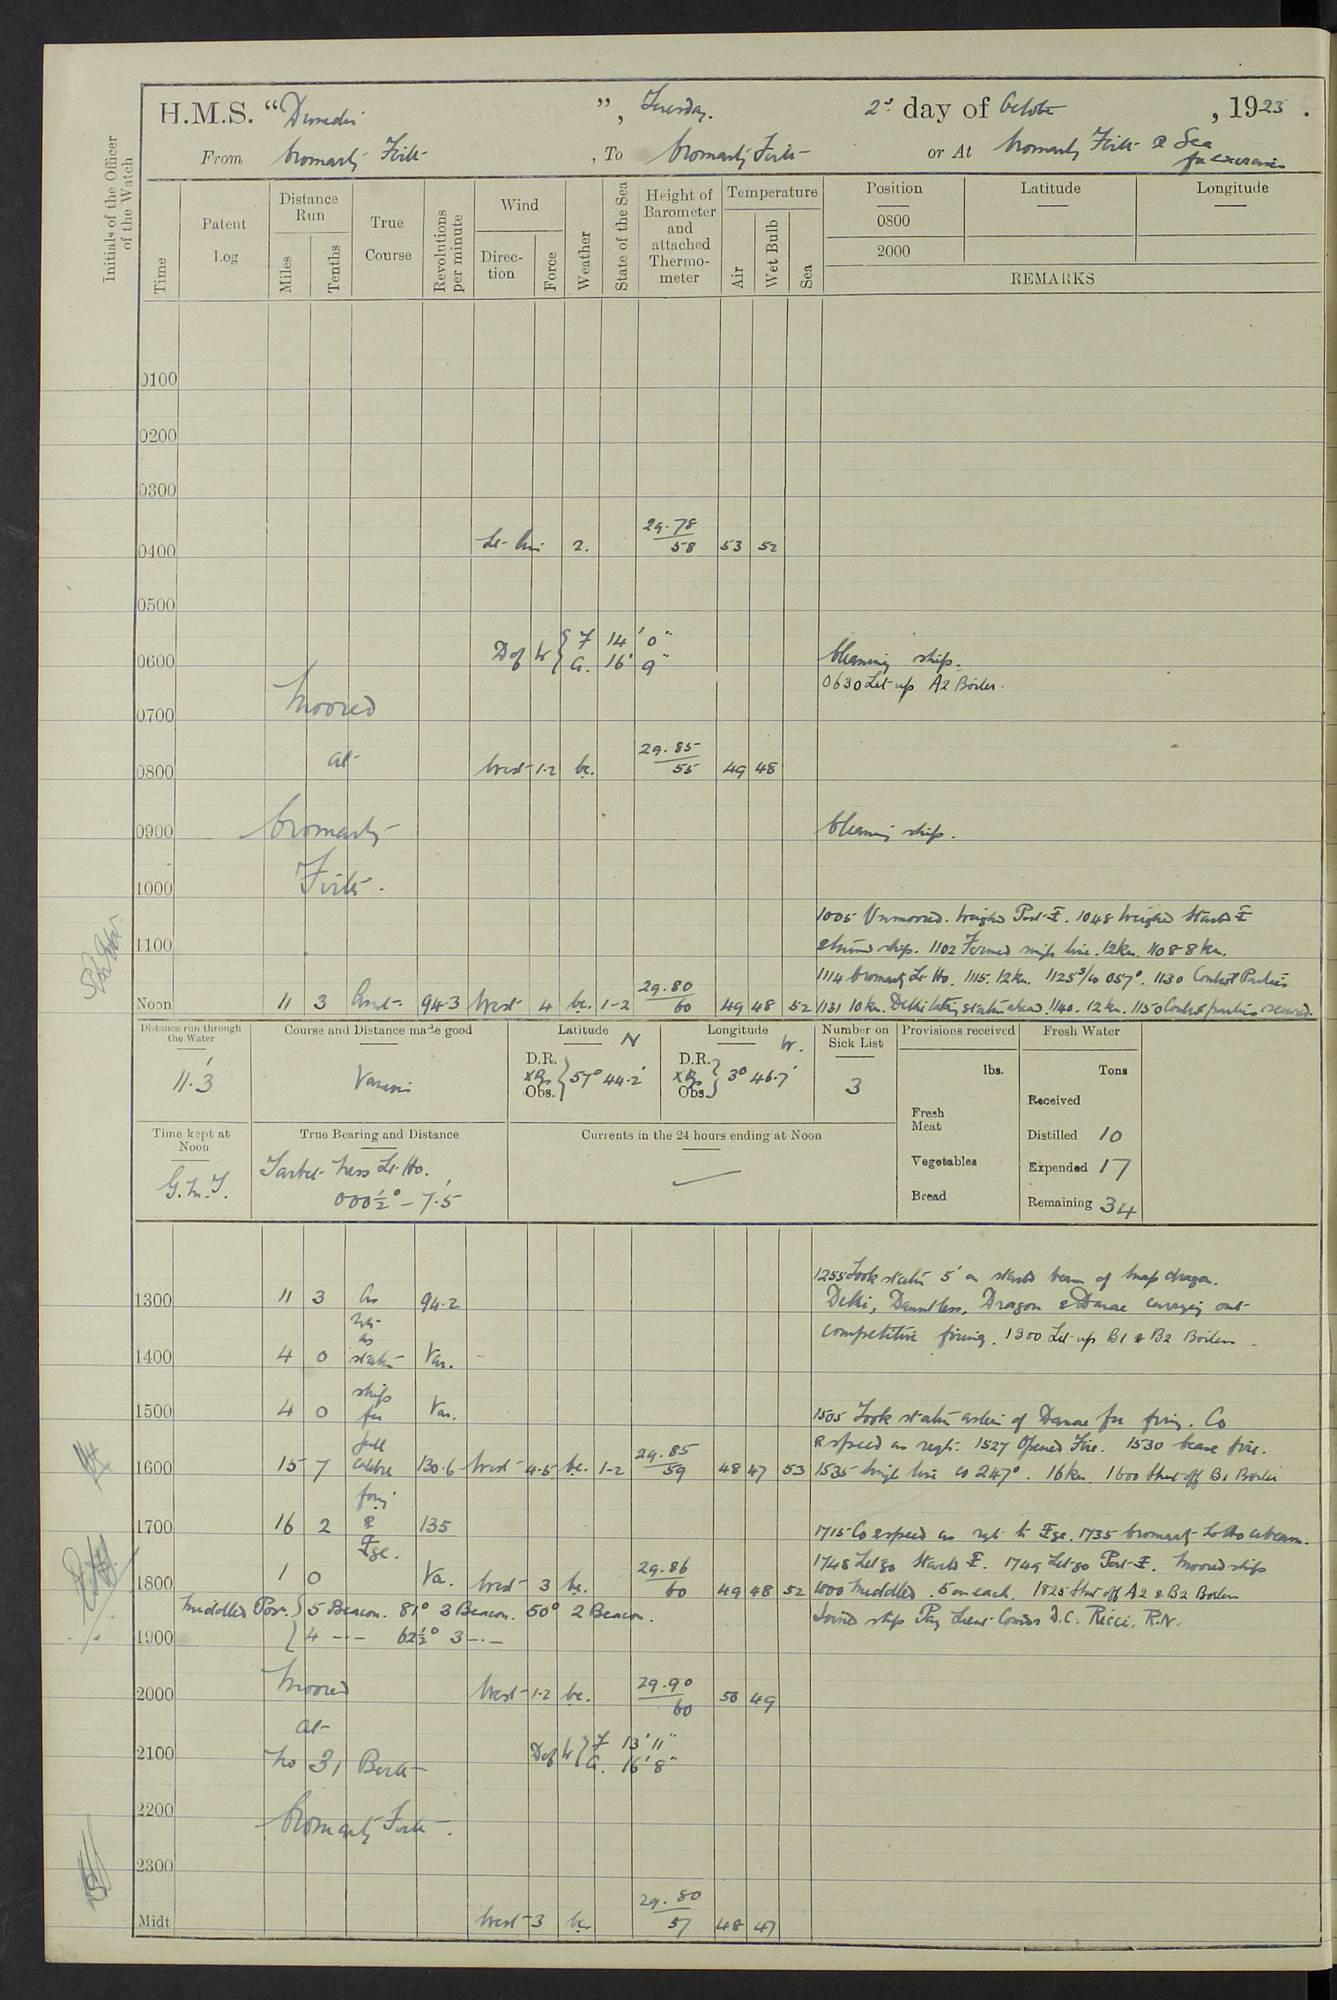 H.M.S. "Dunedin", Tuesday. 2nd day of October, 1923.
From Cromarty Firth, To Cromarty Firth or At Cromarty Firth & Sea
for exercises
Initials of the Officer of the Watch
Time
Patent Log
Distance Run
Miles
Tenths
True Course
Revolutions per minute
Wind
Direction
Force
Weather
State of the Sea
Height of Barometer and attached Thermometer
Temperature
Air
Wet Bulb
Sea
Position
Latitude
Longitude
0800
2000
REMARKS
0100
0200
0300
29.78
0400 Lt. Airs 2. 58 53 52
0500
Dof W { F 14' 0"
0600 A. 16' 9" Cleaning ship.
0630 Let up A2 Boiler.
Moored
0700
at 29.85
0800 West 1-2 bc. 55 49 48
0900 Cromarty Cleaning ship.
Firth.
1000
1005 Unmoored. Weighed Port. 1048 Weighed Starbd
1100 ship. 1102 Formed single line. 12 kn. 1108 8 kn.
29.80 1114 Cromarty Lt. Ho. 1115. 12 kn. 1125 3/c 057°. 1130 Control Parties
Noon 11 3 94.3 West 4 bc. 1-2 60 49 48 52 1131 10 kn. Delhi taking station ahead. 1140. 12 kn. 1150 Control parties secured.
Distance run through the Water
11.3
Course and Distance made good
Various
Latitude N
D.R.
Obs. } 57° 44.2'
Longitude W.
D.R.
Obs. } 3° 46.7'
Number on Sick List
3
Provisions received
lbs.
Fresh Meat
Vegetables
Bread
Fresh Water
Tons
Received
Distilled 10
Expended 17
Remaining 34
Time kept at Noon
G.M.T.
True Bearing and Distance
Tarbet Ness Lt. Ho.
000½° – 7.5'
Currents in the 24 hours ending at Noon
1255 Took station 5' on starbd beam of Snapdragon.
1300 11 3 As 94.2 Delhi, Dauntless, Dragon & Danae carrying out
competitive firing. 1300 Let up B1 & B2 Boilers
1400 4 0 station Var.
ship
1500 4 0 for Var. 1505 Took station astern of Danae for firing. Co
full 29.85 & speed as reqte. 1527 Opened Fire. 1530 Cease fire.
1600 15 7 calibre 130.6 West 4-5 bc. 1-2 59 48 47 53 1535 Single line co 247°. 16 kn. 1600 Shut off B1 Boiler
firing
1700 16 2 & 135 1715 Co & speed as reqt. to 1735 Cromarty Lt Ho abeam.
29.86 1748 Let go Starbd. 1749 Let go Port. Moored ship
1800 1 0 Va. West 3 bc. 60 49 48 52 1800 Middled. 5 on each. 1825 Shut off A2 & B2 Boilers
Middled Pos. { 5 Beacon. 81° 3 Beacon. 50° 2 Beacon. Joined ship Pay Lieut Comdr D.C. Ricci. R.N.
1900 4 — · — 62½° 3 — · —
Moored 29.90
2000 West 1-2 bc. 60 50 49
at Dof W { F 13' 11"
2100 No 31 Berth A. 16' 8"
2200 Cromarty Firth.
2300
29.80
Midt West 3 bc 57 48 47